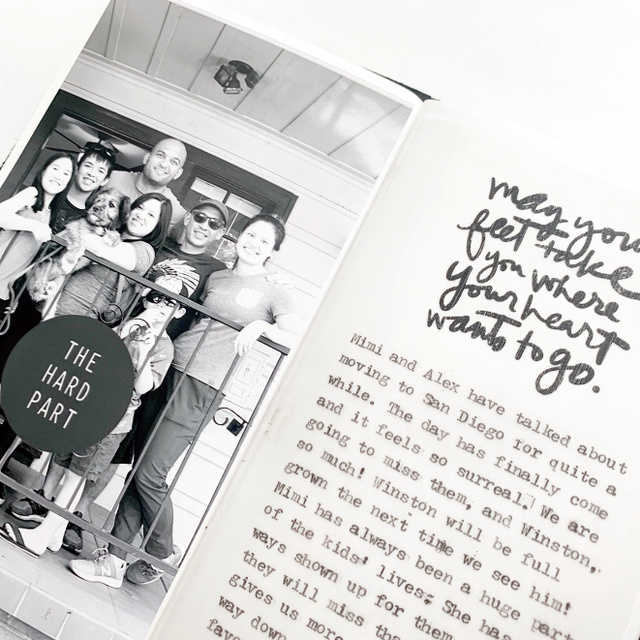 THE
HARD
PART
may your
feet take
you where
your heart
wants to go.
Mimi and Alex have talked about
moving to San Diego for quite a
while. The day has finally come
and it feels so surreal. We are
going to miss them, and Winston,
so much! Winston will be full
grown the next time we see him!
Mimi has always been a huge part
of the kids' lives; She has
ways shown up for them
they will miss the
gives us more
way down
favo